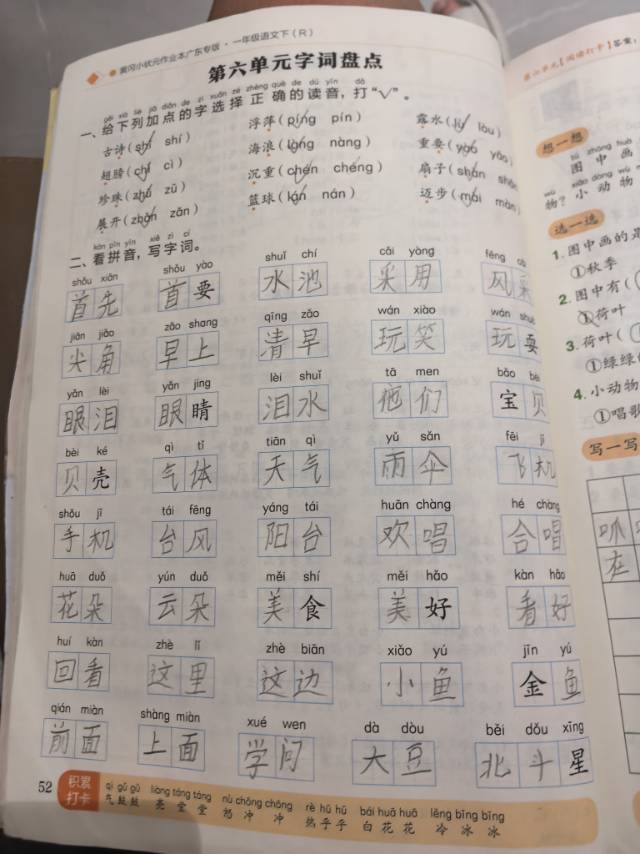 黄冈小状元作业本广东专版·一年级语文下（R）
第六单元字词盘点
一、给下列加点的字选择正确的读音，打“√”。
古诗(shī shí) 浮萍(píng pín) 露水(lù lòu)
翅膀(chì cì) 海浪(làng nàng) 重要(yào yāo)
珍珠(zhū zū) 沉重(chén chéng) 扇子(shàn
展开(zhǎn zǎn) 篮球(lán nán) 迈步(mài màn)
kàn pīn yīn xiě zì cí
二、看拼音，写字词。
shǒu xiān shǒu yào shuǐ chí cǎi yòng fēng cǎi
首先 首要 水池 采用 风采
jiān jiǎo zǎo shang qīng zǎo wán xiào wán shuǎ
尖角 早上 清早 玩笑 玩耍
yǎn lèi yǎn jing lèi shuǐ tā men bǎo bèi
眼泪 眼睛 泪水 他们 宝贝
bèi ké qì tǐ tiān qì yǔ sǎn fēi jī
贝壳 气体 天气 雨伞 飞机
shǒu jī tái fēng yáng tái huān chàng hé chàng
手机 台风 阳台 欢唱 合唱
huā duǒ yún duǒ měi shí měi hǎo kàn hǎo
花朵 云朵 美食 美好 看好
huí kàn zhè lǐ zhè biān xiǎo yú jīn yú
回看 这里 这边 小鱼 金鱼
qián miàn shàng miàn xué wen dà dòu běi dǒu xīng
前面 上面 学问 大豆 北斗星
52
积累打卡
qì gǔ gǔ liàng táng táng nù chōng chōng rè hū hū bái huā huā lěng bīng bīng
气鼓鼓 亮堂堂 怒冲冲 热乎乎 白花花 冷冰冰
第六单元【阅读打卡】答案
想一想
图中画
物？小动物
选一选
1.图中画的是
①秋季
2.图中有(
①荷叶
3.荷叶(
①绿绿
4.小动物
①唱歌
写一写
在